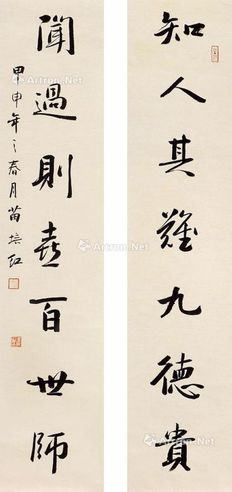 知人其難九德貴
聞過則喜百世師
甲申年之春月苗培红
Artron.Net
Artron.Net
Artron.Net
Artron.Net